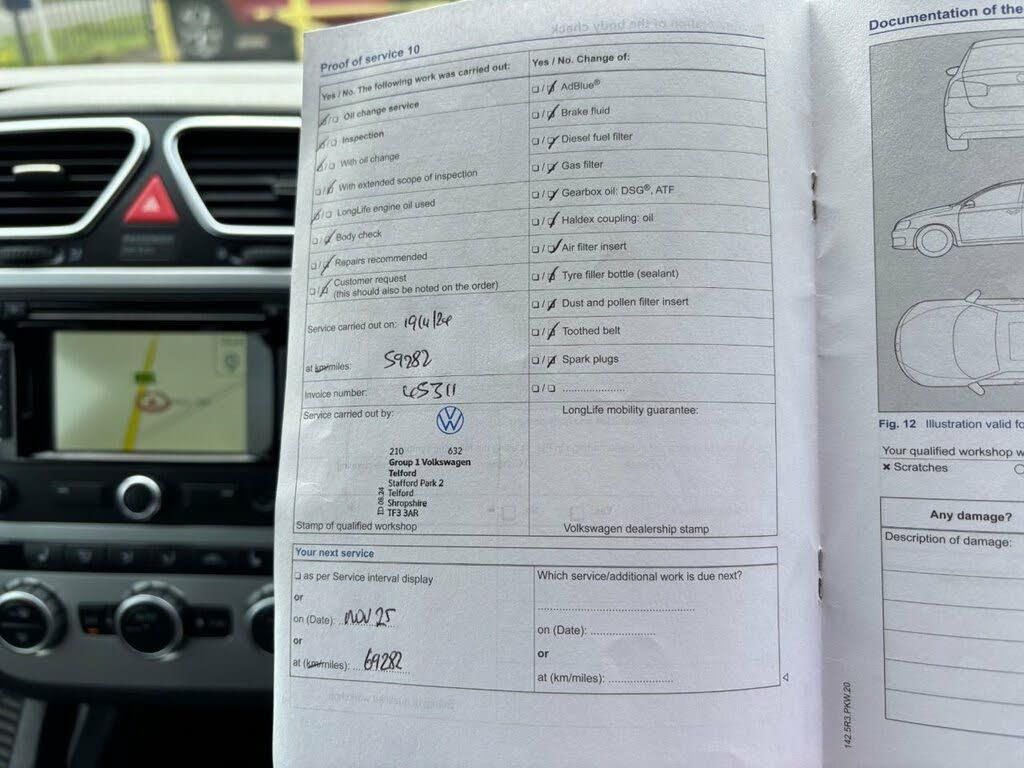 Proof of service 10
Yes / No. The following work was carried out:
Oil change service
Inspection
With oil change
With extended scope of inspection
LongLife engine oil used
Body check
Repairs recommended
Customer request
(this should also be noted on the order)
Service carried out on: 19/4/24
at km/miles: 59282
Invoice number: 65311
Service carried out by:
210 632
Group 1 Volkswagen
Telford
Stafford Park 2
Telford
Shropshire
TF3 3AR
Stamp of qualified workshop
Yes / No. Change of:
AdBlue®
Brake fluid
Diesel fuel filter
Gas filter
Gearbox oil: DSG®, ATF
Haldex coupling: oil
Air filter insert
Tyre filler bottle (sealant)
Dust and pollen filter insert
Toothed belt
Spark plugs
LongLife mobility guarantee:
Volkswagen dealership stamp
Your next service
as per Service interval display
or
on (Date): NOV 25
or
at (km/miles): 69282
Which service/additional work is due next?
on (Date):
or
at (km/miles):
142.5R3.PKW.20
Documentation of the
Fig. 12 Illustration valid fo
Your qualified workshop w
× Scratches
Any damage?
Description of damage: